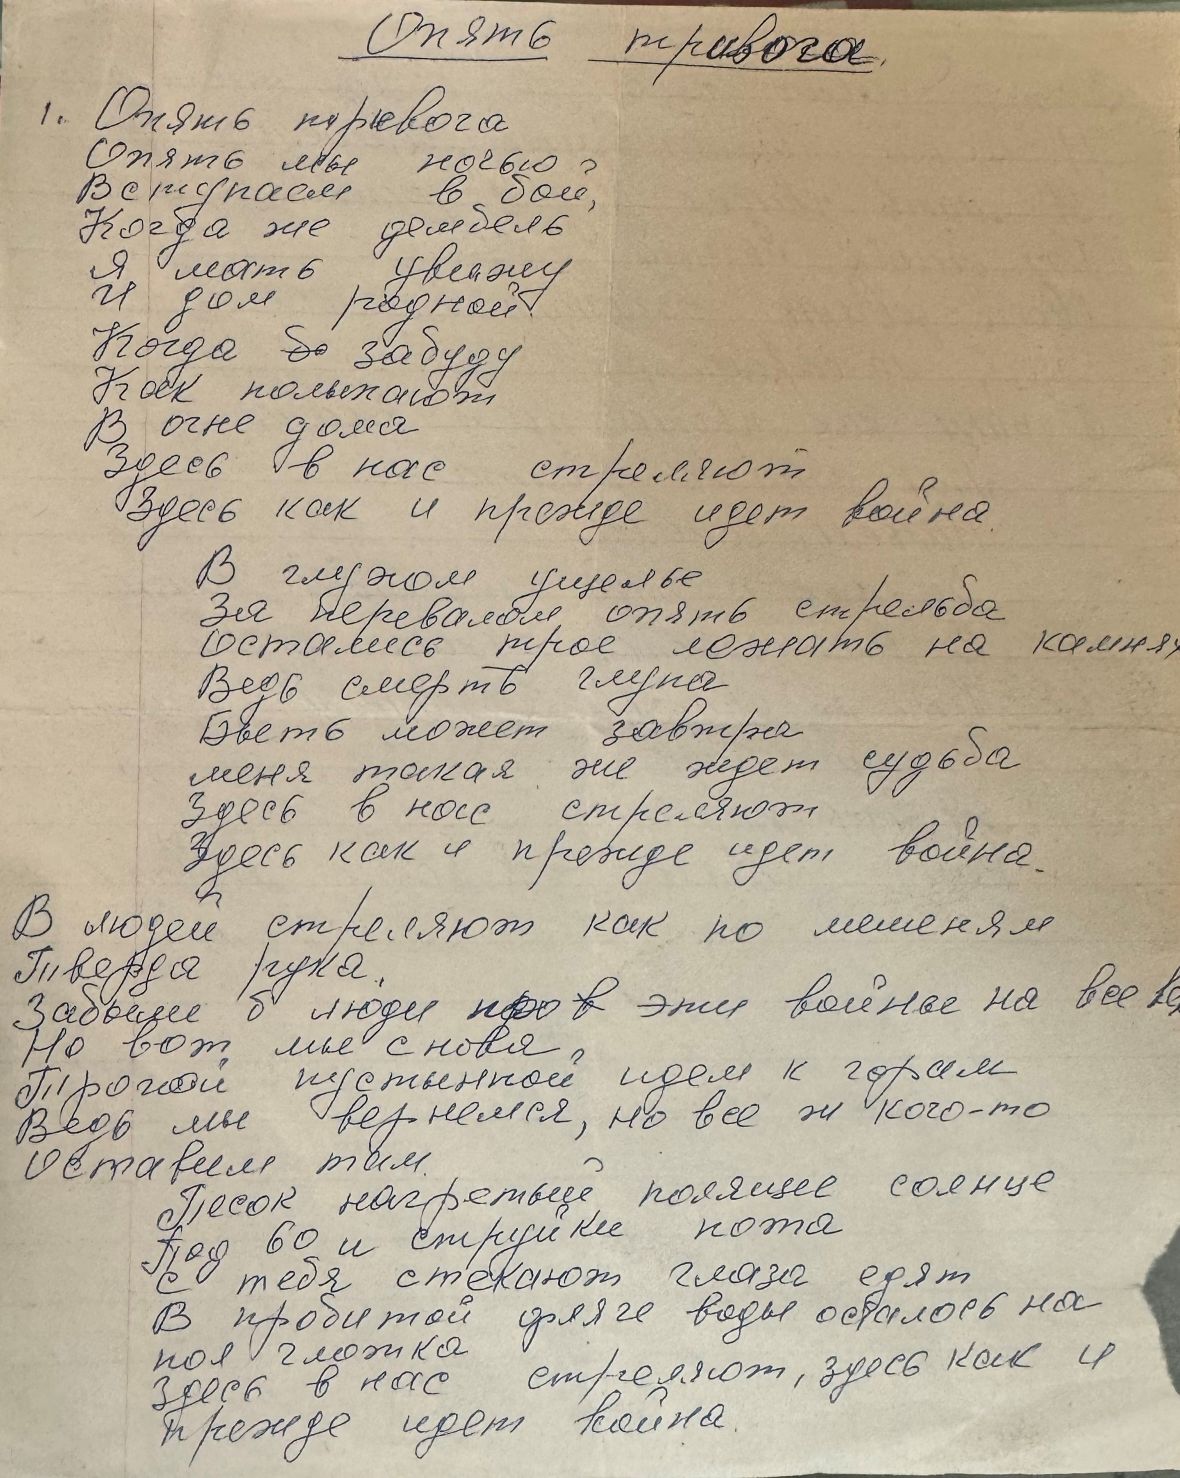 Опять тривога.
1. Опять тревога
Опять мы ночью
Вступаем в бой,
Когда же дембель
Я мать увижу
И дом родной
Когда забуду
Как полыхают
В огне дома
Здесь в нас стреляют
Здесь как и прежде идет война.
В глухом ущелье
За перевалом опять стрельба
Остались трое лежать на камнях
Ведь смерть глупа
Быть может завтра
меня такая же ждет судьба
Здесь в нас стреляют
Здесь как и прежде идет война.
В людей стреляют как по мешеням
Тверда рука,
Забыли б люди эти войны на все
Но вот мы снова,
Трогой пустынной идем к горам
Ведь мы вернемся, но все ж кого-то
Оставим там.
Песок нагретый полящее солнце
Под 60 и струйки пота
С тебя стекают глаза едят
В пробитой фляге воды осталось на
пол глотка
Здесь в нас стреляют, здесь как и
прежде идет война.